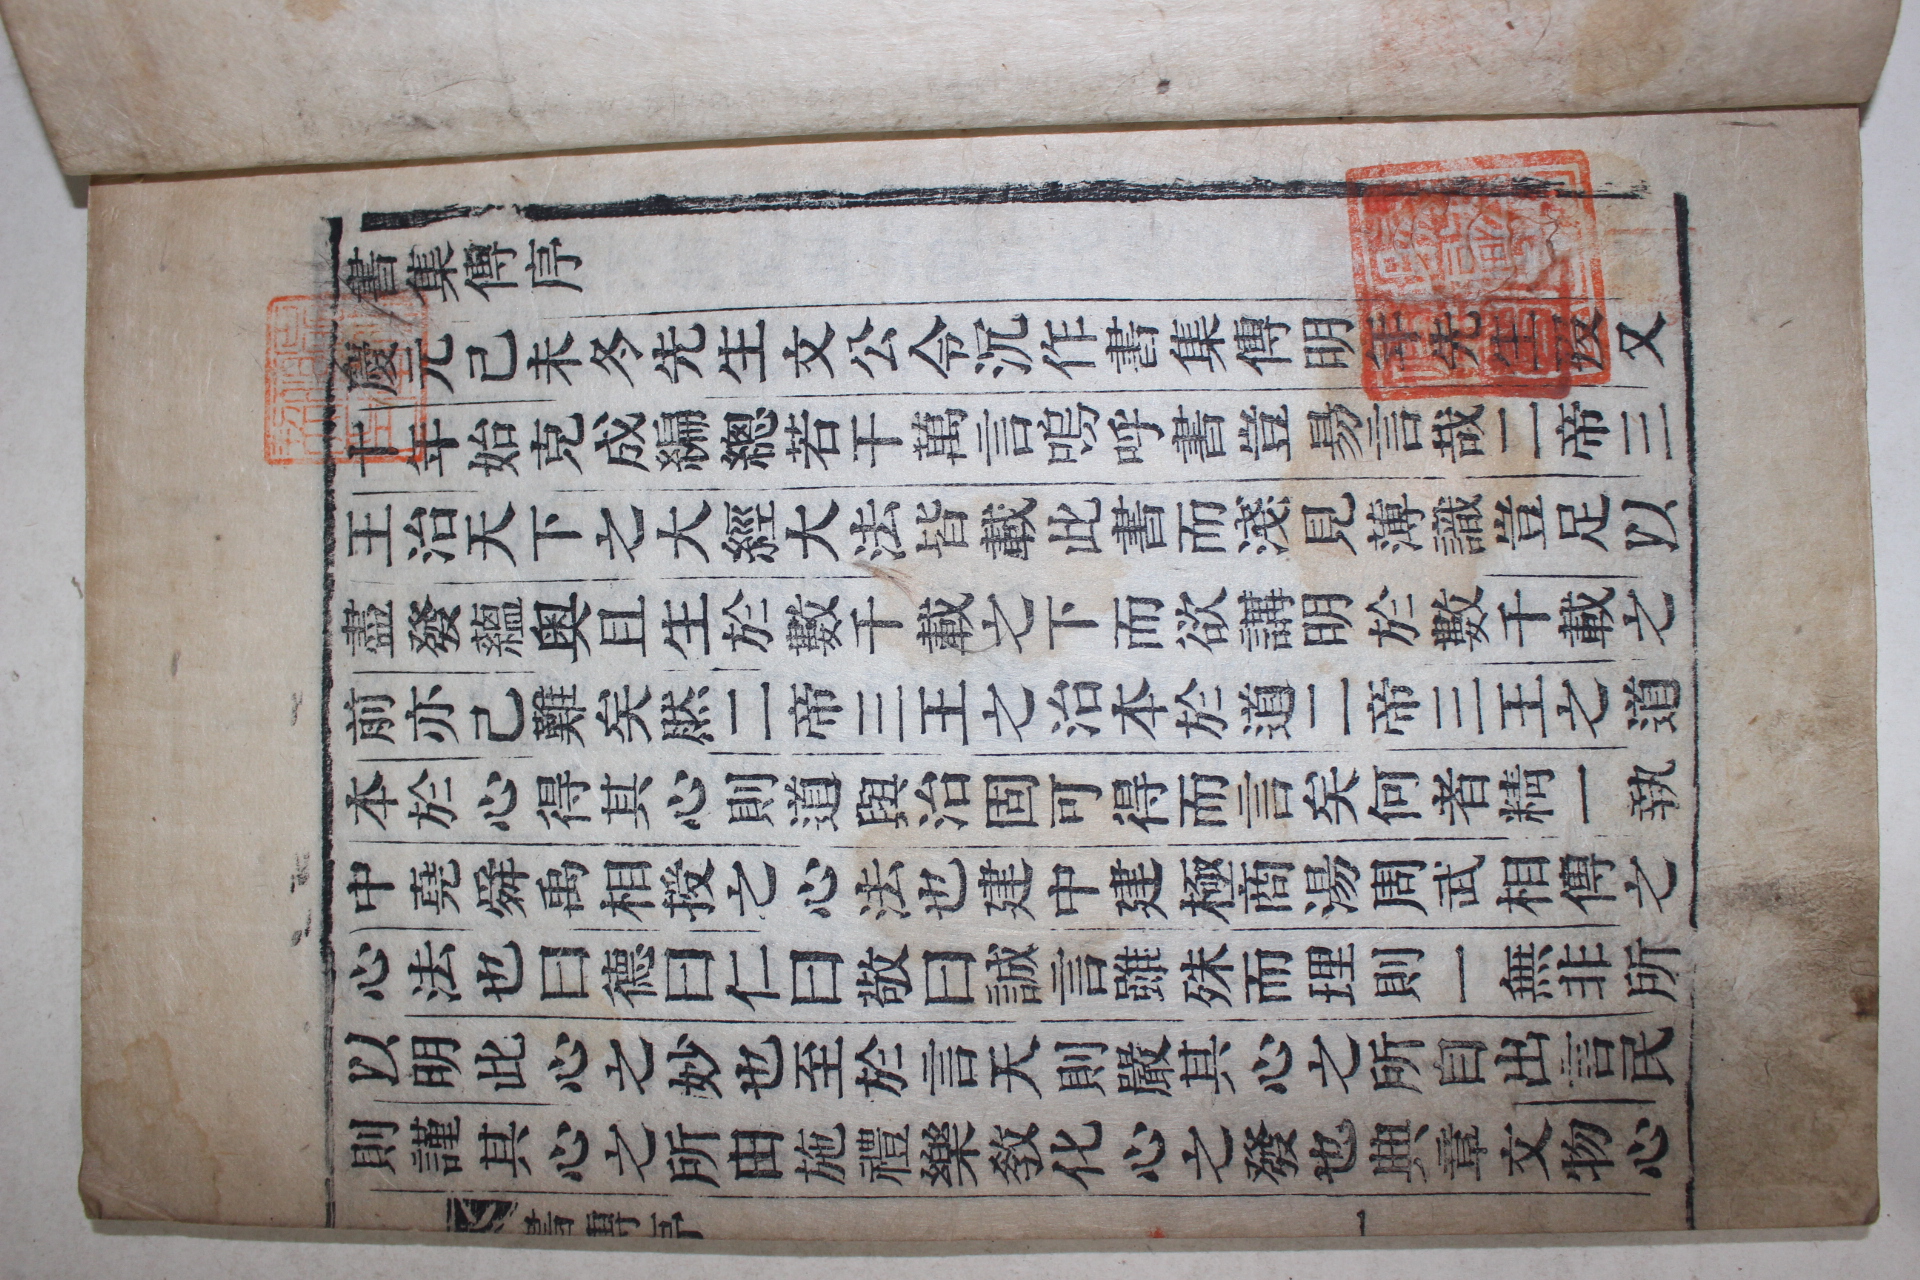 書集傳序
慶元己未冬先生文公令沉作書集傳明年先生歿又
十年始克成編總若干萬言嗚呼書豈易言哉二帝三
王治天下之大經大法皆載此書而淺見薄識豈足以
盡發蘊奧且生於數千載之下而欲講明於數千載之
前亦已難矣然二帝三王之治本於道二帝三王之道
本於心得其心則道與治固可得而言矣何者精一執
中堯舜禹相授之心法也建中建極商湯周武相傳之
心法也曰德曰仁曰敬曰誠言雖殊而理則一無非所
以明此心之妙也至於言天則嚴其心之所自出言民
則謹其心之所由施禮樂敎化心之發也典章文物心
書傳序
一